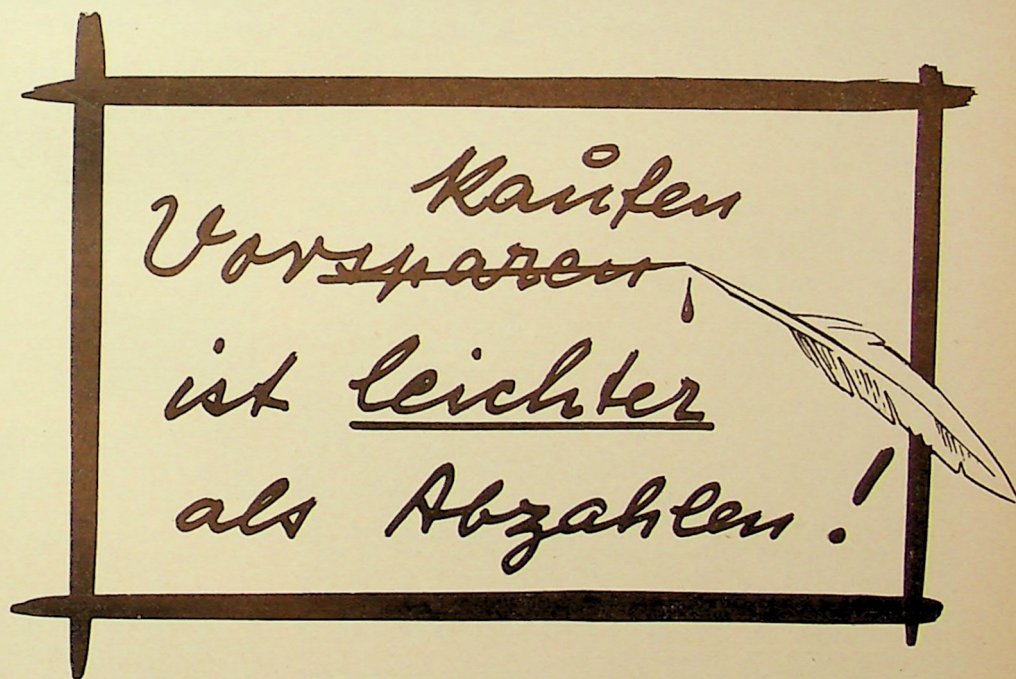 kaufen
Vorsparen
ist leichter
als Abzahlen!